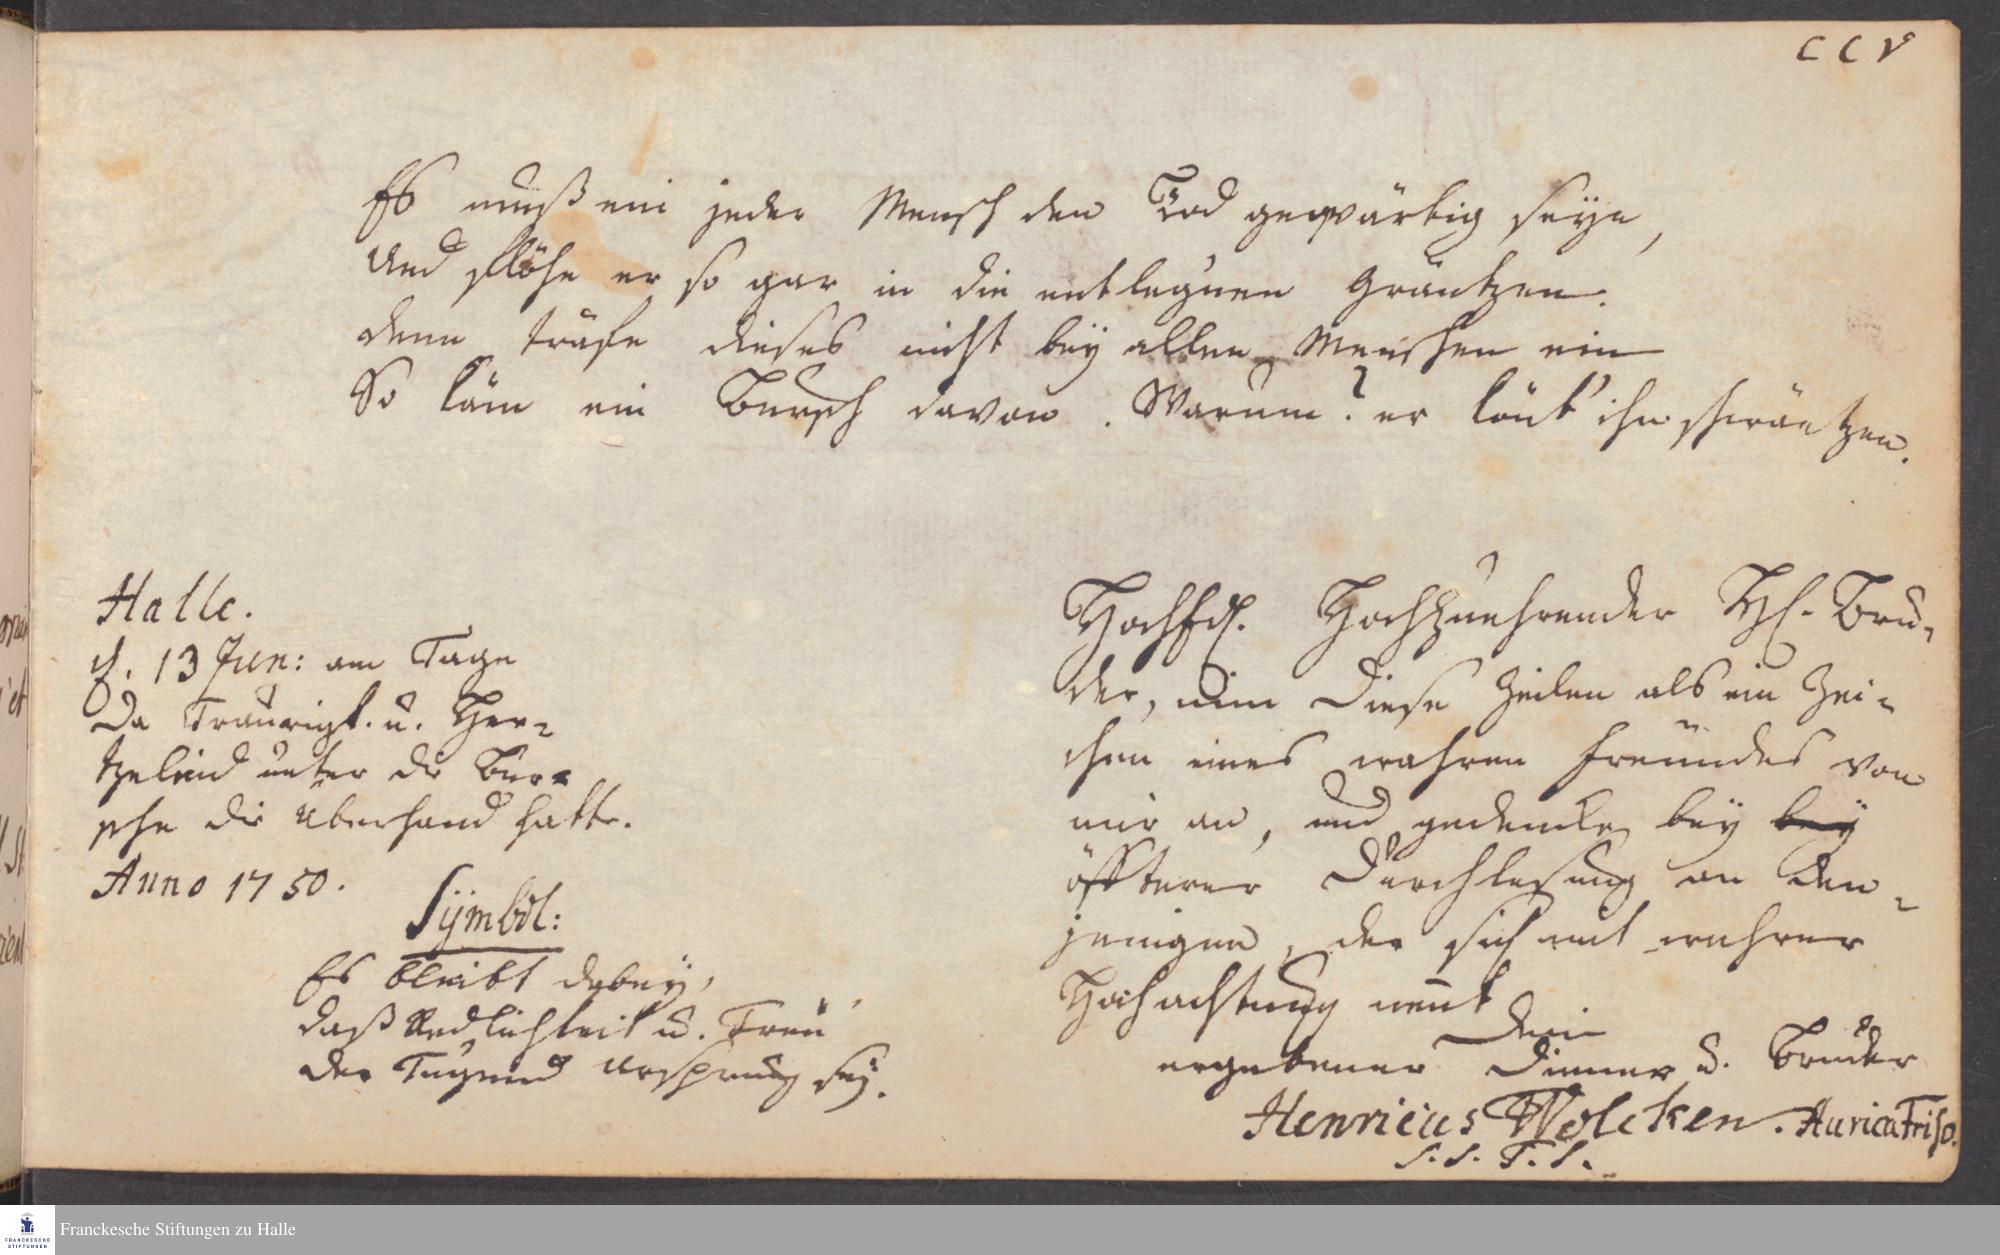 CCV
Es muß ein jeder Mensch den Tod gewärtig seyn,
Und flöhe er so gar in die entlegnen Gräntzen.
denn träfe dieses nicht bey allen Menschen ein
So käm ein Bursch davon. Warum? er könt' ihn schwäntzen.
Halle.
d. 13 Jun: am Tage
da Traurigk. u. Her-
tzeleid unter die Bur-
sche die Überhand hatte.
Anno 1750.
Symbol:
Es bleibt dabey,
daß Redlichkeit u. Treu
der Tugend Ursprung sey.
Hochzuehrender Hl. Bru-
der, nim diese Zeilen als ein Zei-
chen eines wahren Freundes von
mir an, und gedencke bey bey
öffterer Durchlesung an den-
jenigen, der sich mit wahrer
Hochachtung nent
Dein
ergebener Diener u. Bruder
Henricus Wolcken. Aurica Friso.
S. S. T. S.
Franckesche Stiftungen zu Halle
FRANCKESCHE
STIFTUNGEN